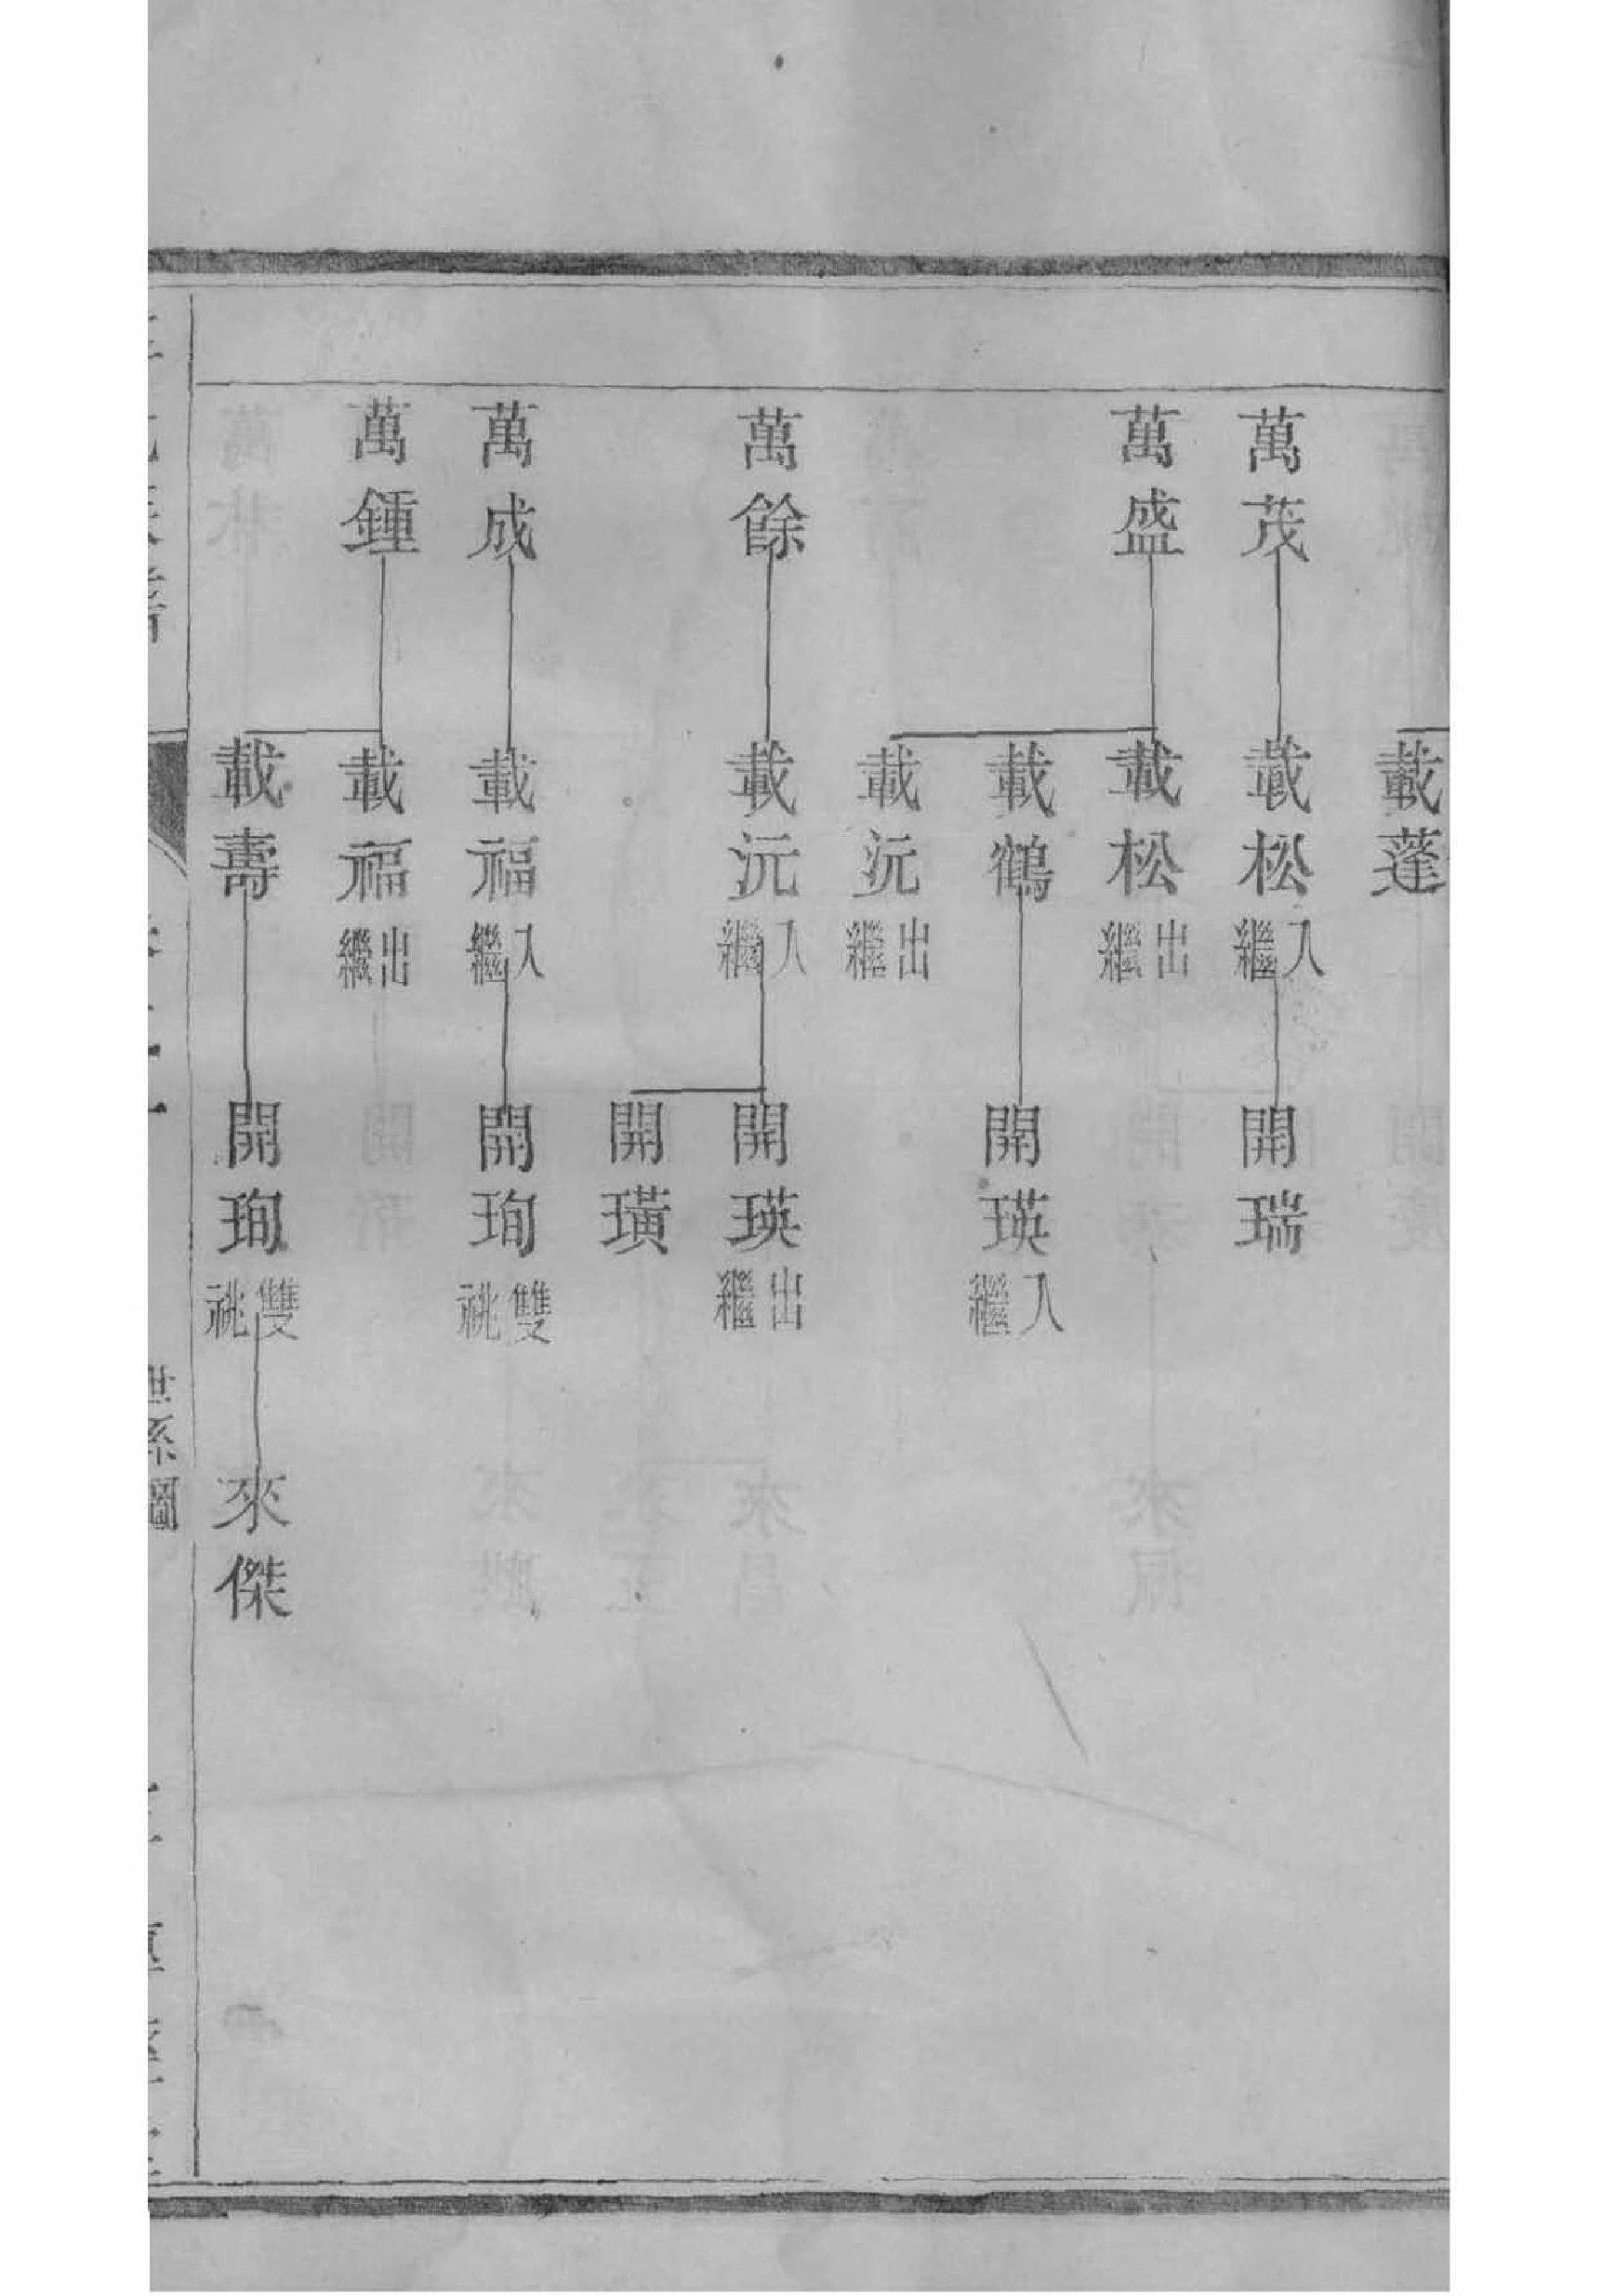 載蓬
萬茂
載松入繼
開瑞
萬盛
載松出繼
載鶴
開瑛入繼
載沅出繼
萬餘
載沅入繼
開瑛出繼
開璜
萬成
載福入繼
開珣雙祧
萬鍾
載福出繼
載壽
開珣雙祧
來傑
世系圖